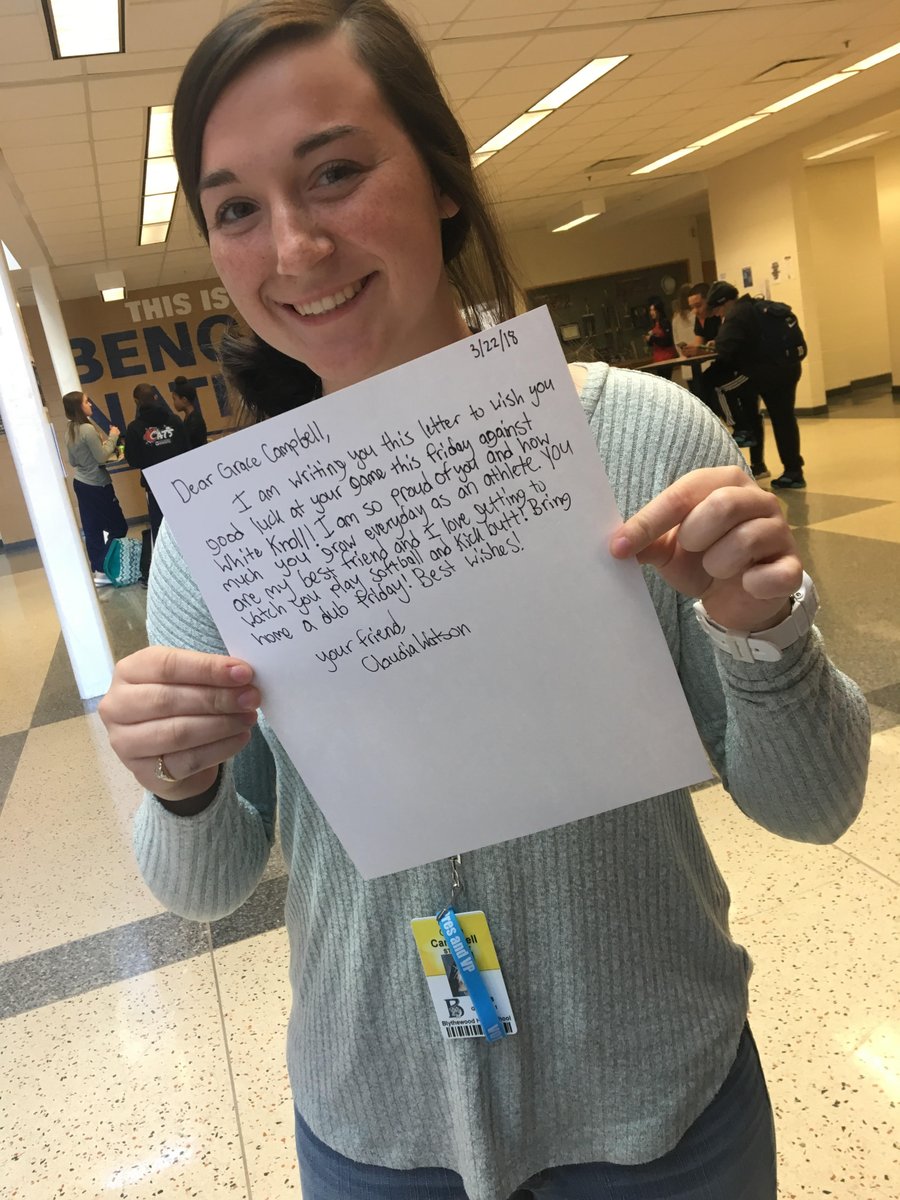 THIS IS
BENG
NATI
3/22/18
Dear Grace Campbell,
I am writing you this letter to wish you
good luck at your game this friday against
White Knoll! I am so proud of you and how
much you grow everyday as an athlete. You
are my best friend and I love getting to
watch you play softball and kick butt! Bring
home a dub friday! Best wishes!
your friend,
Claudia Watson
Yes and VP
B
Blythewood